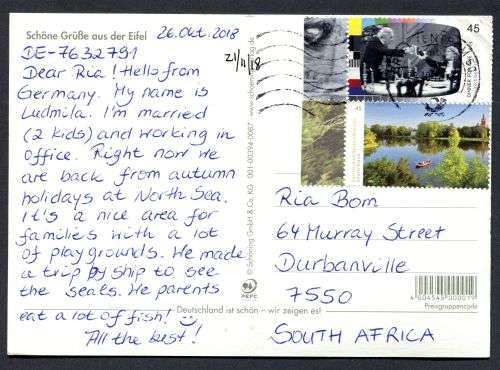 Schöne Grüße aus der Eifel
26.Okt.2018
DE-7632791
21/11/18
Dear Ria! Hello from
Germany. My name is
Ludmila. I'm married
(2 kids) and working in
office. Right now we
are back from autumn
holidays at North Sea.
It's a nice area for
families with a lot
of playgrounds. We made
a trip by ship to see
the seals. We parents
eat a lot of fish!
All the best!
Deutschland ist schön – wir zeigen es!
© Schöning GmbH & Co. KG
www.schoening-verlag.de
PEFC
45
DINNER FOR ONE
45
Ria Bom
64 Murray Street
Durbanville
7550
SOUTH AFRICA
4 004545 000019
Preisgruppencode